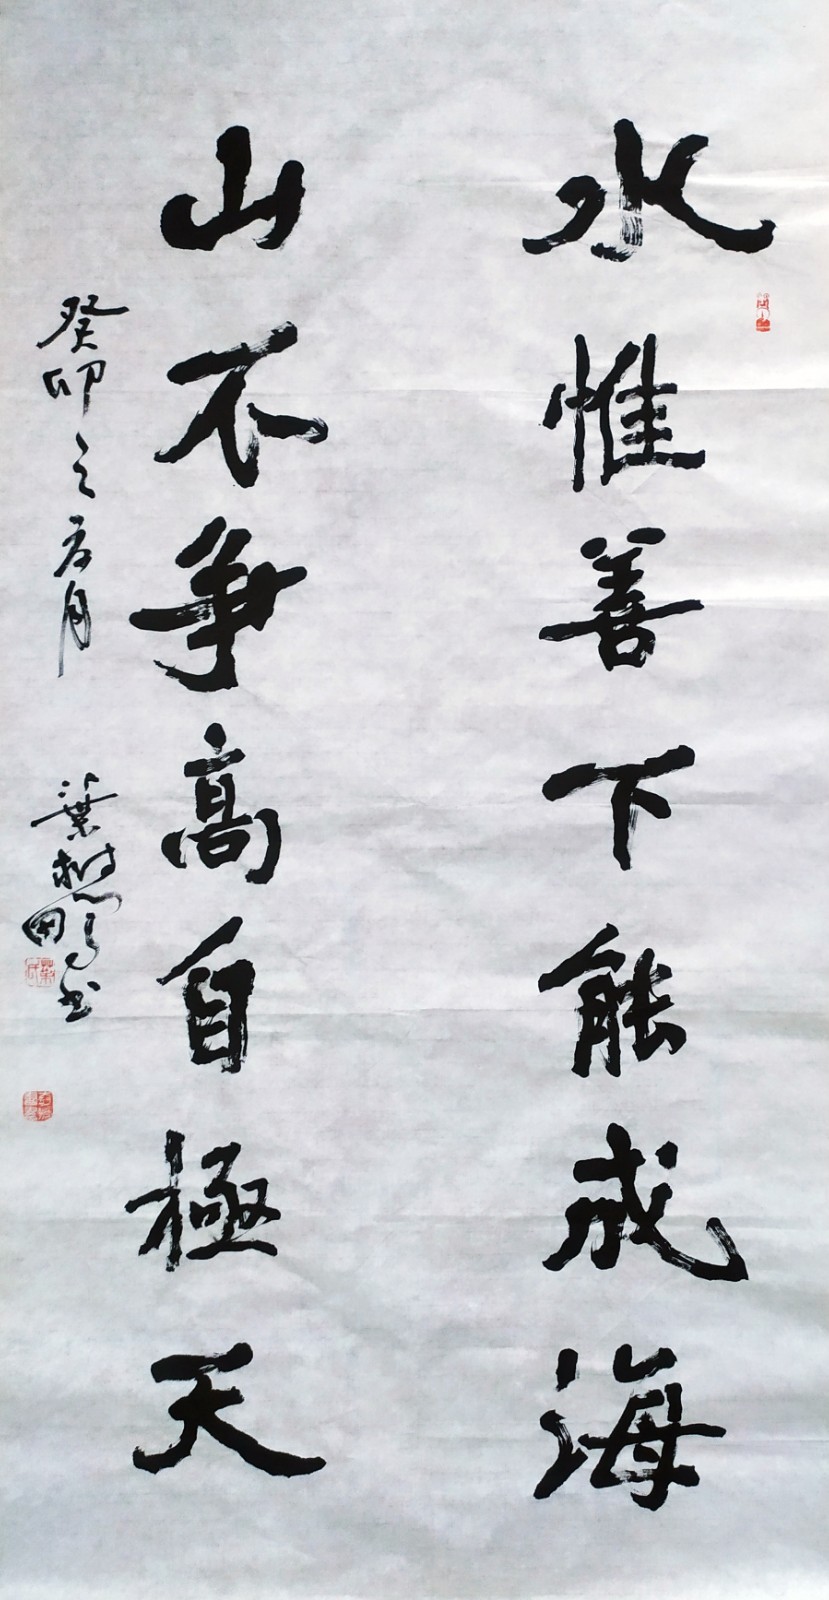 水惟善下能成海
山不争高自極天
癸卯之元月
葉樹鵬書